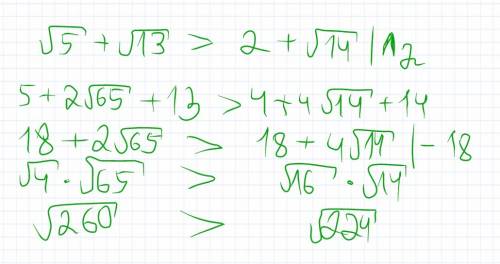 √5 + √13 > 2 + √14 | ^2
5 + 2√65 + 13 > 4 + 4√14 + 14
18 + 2√65 > 18 + 4√14 | - 18
√4 · √65 > √16 · √14
√260 > √224